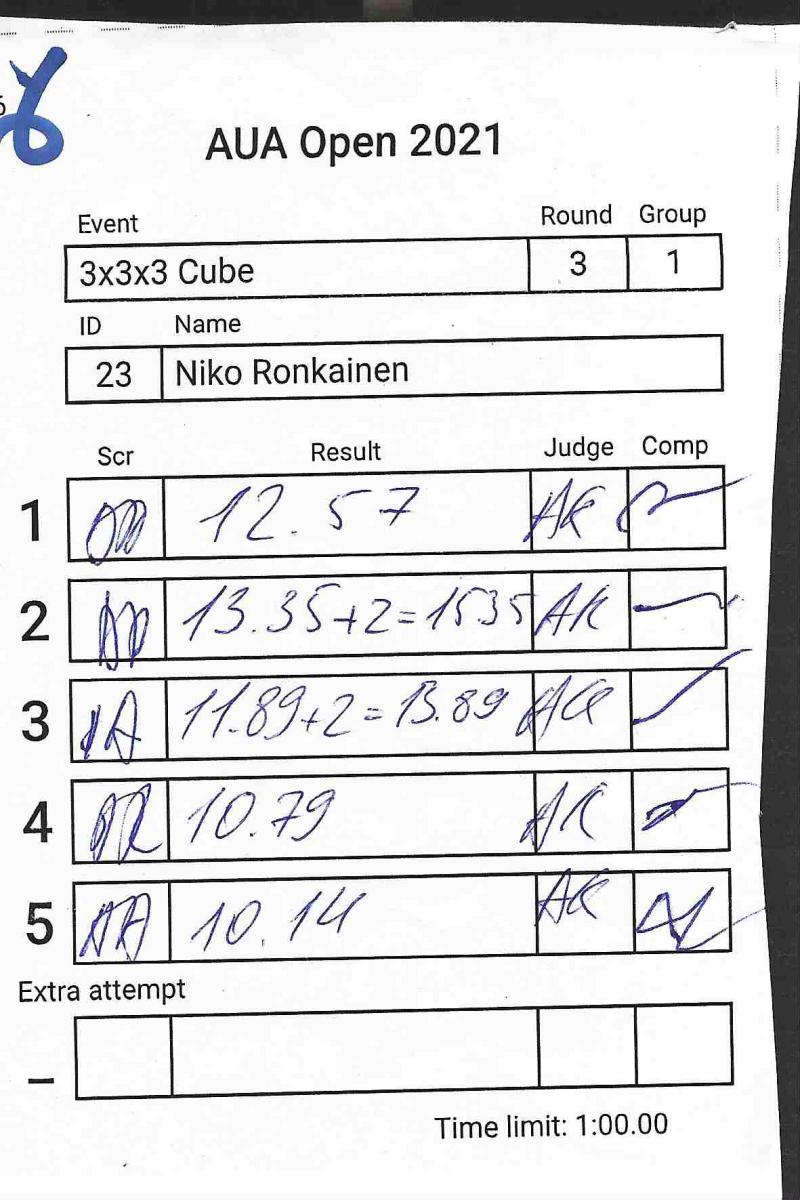 AUA Open 2021
Event Round Group
3x3x3 Cube 3 1
ID Name
23 Niko Ronkainen
Scr Result Judge Comp
1 12.57 AK
2 13.35+2=15.35 AK
3 11.89+2=13.89 AK
4 10.79 AK
5 10.14 AK
Extra attempt
_
Time limit: 1:00.00